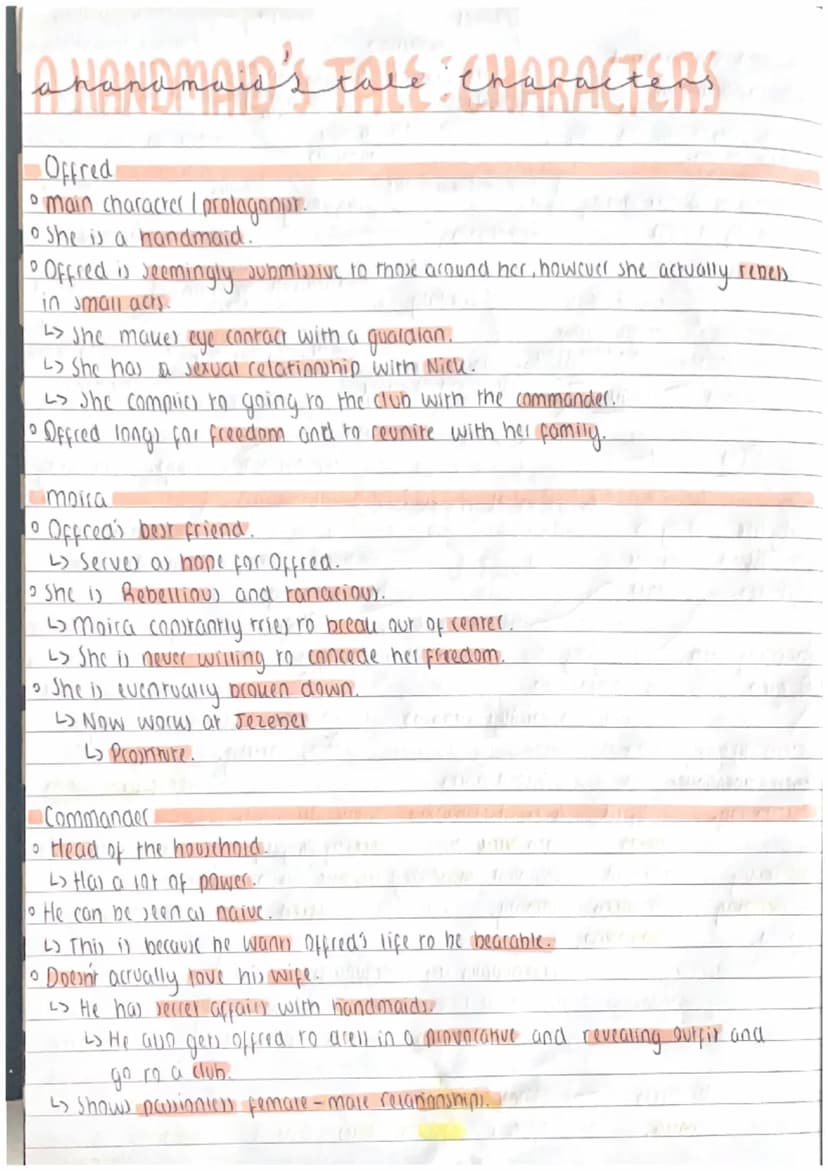 A HANDMAID'S TALE : CHARACTERS
a handmaid's tale : characters
Offred
° main character / protagonist.
° She is a handmaid.
° Offred is seemingly submissive to those around her, however she actually rebels
in small acts.
↳ She makes eye contact with a guardian.
↳ She has a sexual relationship with Nick.
↳ She complies to going to the club with the commander.
° Offred longs for freedom and to reunite with her family.
Moira
° Offred's best friend.
↳ Serves as hope for Offred.
° She is Rebellious and tanacious.
↳ Moira constantly tries to break out of center.
↳ She is never willing to concede her freedom.
° She is eventually broken down.
↳ Now works at Jezebel
↳ Prostitute.
Commander
° Head of the household.
↳ Has a lot of power.
° He can be seen as naive.
↳ This is because he wants Offred's life to be bearable.
° Doesn't actually love his wife.
↳ He has secret affairs with handmaids.
↳ He also gets offred to dress in a provocative and revealing outfit and
go to a club.
↳ Shows passionless female - male relationships.